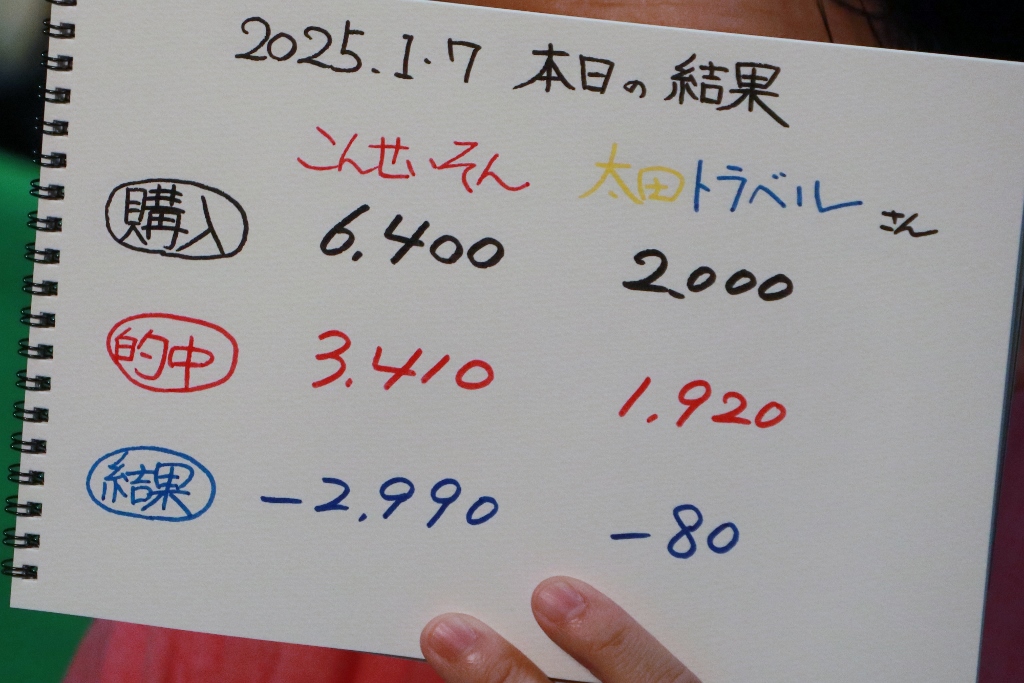 2025.1.7 本日の結果
こんせいそん 太田トラベルさん
購入 6.400 2.000
的中 3.410 1.920
結果 -2.990 -80